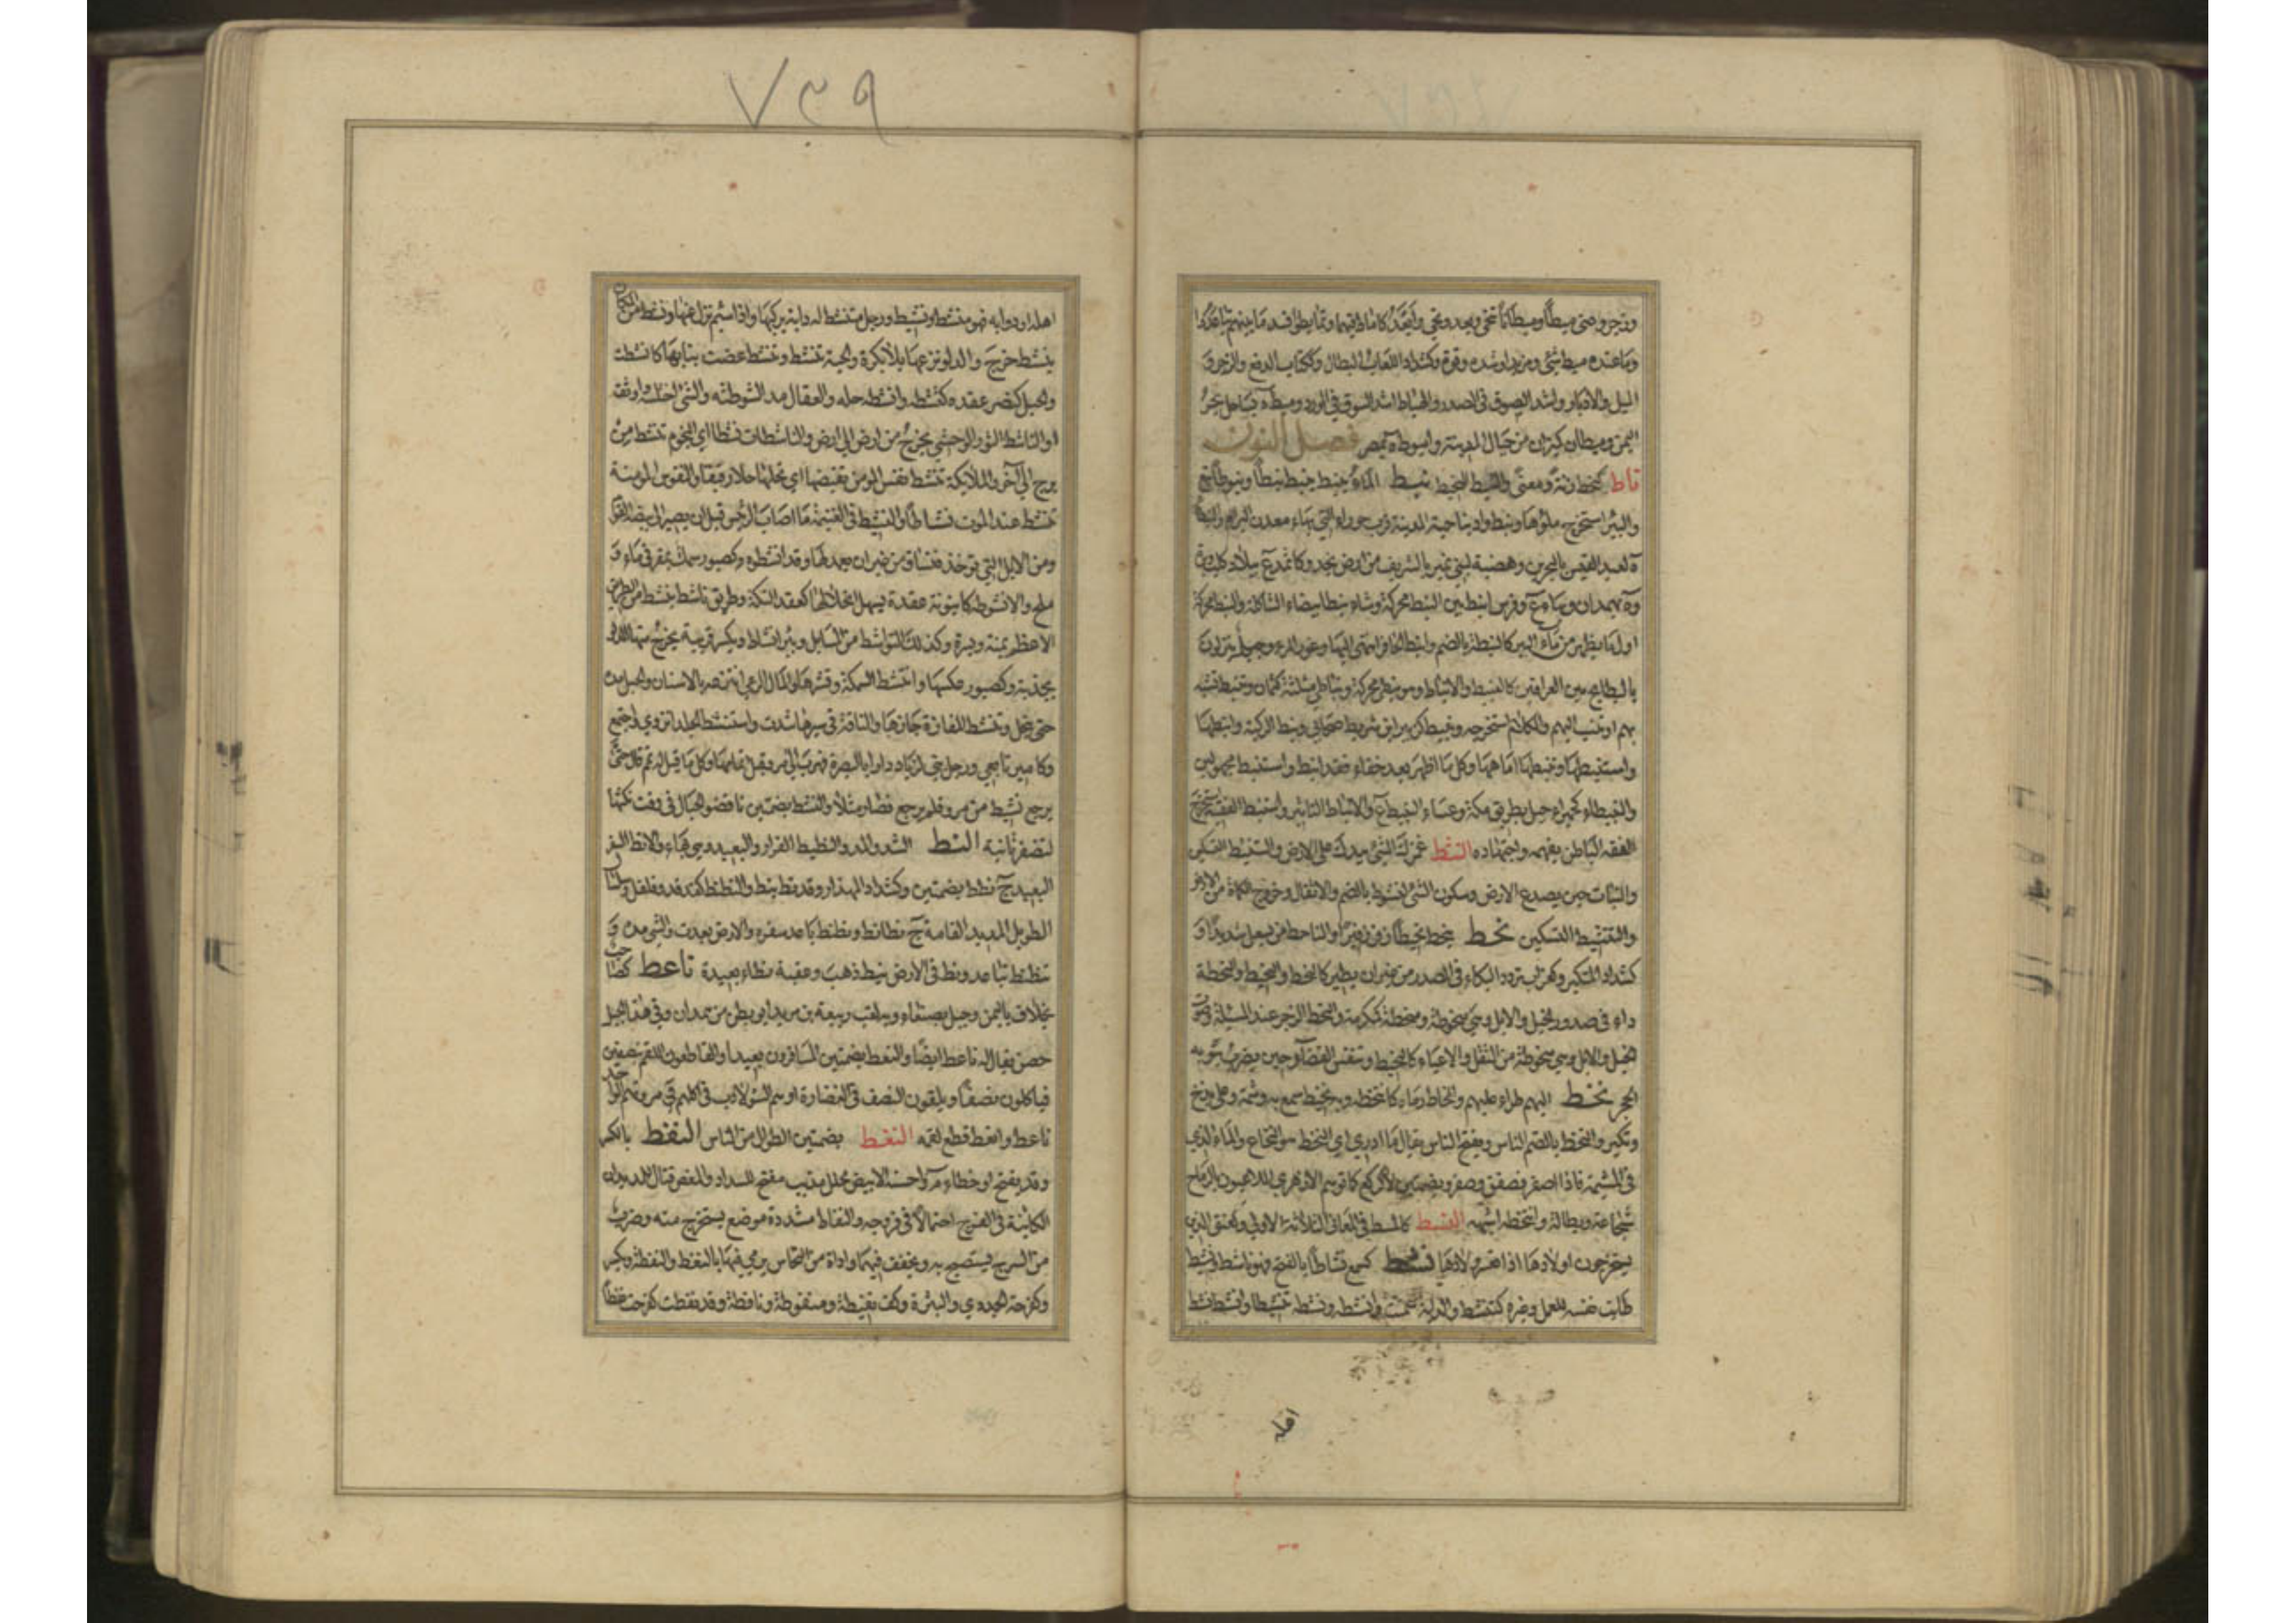 وزجر وعنى ميطا وميطانا تنحى وبعد ونحى وابعد كاماط فيهما وتمايطوا فسد ما بينهم تباعدوا
وما عنده ميط شئ ومزيد وشدة وقوة وكشداد اللعاب البطال وككتاب الدفع والزجر و
الميل والادبار واشد السوق فى الصدر والهياط اشد السوق فى الورد وميطة بساحل بحر
اليمن وميطان كيزان من جبال المدينة واميوطة بمصر فصل النون
ناط كنحط زنة ومعنى والنئيط النحيط نبط الماء ينبط وينبط نبطا ونبوطا نبع
والبئر استخرج ماؤها ونبط واد بناحية المدينة قرب حوراء التى بها معدن البرام والنبطاء
ة لعبد القيس بالبحرين وهضبة لبنى نمير بالشريف من ارض نجد وكاثمد ع ببلاد كلب بن وبرة
وة بهمدان وبهاء ع وفرس انبط بين النبط محركة وشاة نبطاء بيضاء الشاكلة والنبط محركة
اول ما يظهر من ماء البئر كالنبطة بالضم وانبط الحافر انتهى اليها وغور المرء وجيل ينزلون
بالبطايح بين العراقين كالنبيط والانباط وهو نبطى محركة ونباطى مثلثة كثمان وتنبط تشبه
بهم او تنسب اليهم والكلام استخرجه ونبيط كزبير ابن شريط صحابى ونبط الركية وانبطها
واستنبطها وتنبطها اماهها وكل ما اظهر بعد خفاء فقد انبط واستنبط مجهولين
والنبيطاء كحميراء جبل بطريق مكة وعساء النبيط ع والانباط التاثير واستنبط الفقيه استخرج
الفقه الباطن بفهمه واجتهاده النثط غمزك الشئ بيدك على الارض والتنثيط التسكين
والنبات حين يصدع الارض وسكون الشئ كالنثوط بالضم والاثقال وخروج الكماة من الارض
والتنثيط التسكين نحط ينحط نحيطا زفر زفيرا والناحط من يسعل شديدا و
كشداد المتكبر وكغراب تردد البكاء فى الصدر من غير ان يظهر كالنحط والنحيط والنحطة
داء فى صدور الخيل والابل وهى منحوطة ومنحطة ككرمة والنحط الزجر عند المسئلة وصوت
الخيل والابل وهى منحوطة من الثقل والاعياء كالنحيط وتنفس القصار حين يضرب بثوبه
الحجر نخط اليهم طراء عليهم والمخاط رماه كانتخطه وبه نخيط سمع به وشتمه وعلى بذخ
وتكبر والنخط بالضم الناس ويفتح الناس يقال ما ادرى اى النخط هو والنخاع والماء الذى
فى المشيمة فاذا اصفر فصفق وصفر وبضمتين لا الركع كما توهم الازهرى اللاعبون بالرماح
شجاعة وبطالة وانتخطه اشبهه النسط كالمسط فى المعانى الثلاثة الاولى وكعنق الذين
يستخرجون اولادها اذا تعسر ولادها نشط كسمع نشاطا بالفتح فهو ناشط ونشيط
طابت نفسه للعمل وغيره كتنشط والدابة سمنت وانشطه ونشطه تنشيطا وانشط نشط
اهله
٧٣٩
اهله او دوابه فهو منشط ونشيط ورجل متنشط له دابة يركبها واذا سئم نزل عنها ونشط من المكان
ينشط خرج والدلو نزعها بلا بكرة والحية تنشط وتنشط عضت بنابها كانشطت
والحبل كنصر عقده كنشطه وانشطه حله والعقال مد انشوطته والشئ اختلسه واوثقه
او الناشط الثور الوحشى يخرج من ارض الى ارض والناشطات نشطا اى النجوم تنشط من
برج الى آخر والملائكة تنشط نفس المومن بقبضها اى تحلها حلا رفيقا والنفوس المومنة
تنشط عند الموت نشاطا والنشيطة فى الغنيمة ما اصاب الرئيس قبل ان يصير الى بيضة القوم
ومن الابل التى توخذ فتساق من غير ان يعمد لها وقد انتشطوه وكصبور سمك يمقر فى ماء و
ملح والانشوطة كانبوبة عقدة يسهل انحلالها كعقد التكة وطريق ناشط ينشط من الطريق
الاعظم يمنة ويسرة وكذلك النواشط من المسايل وبئر انشاط ويكسر قريبة يخرج منها الدلو
بجذبة وكصبور عكسها وانتشط السمكة وقشرها والمال الرعى انتزعه بالاسنان والحبل مده
حتى ينحل وتنشط المفازة جازها والناقة فى سيرها شدت واستنشط الجلد انزوى واجتمع
وكامير تابعى ورجل بنى لزياد دارا بالبصرة فهرب الى مرو قبل اتمامها وكل ما قيل له تمم قال حتى
يرجع نشيط من مرو فلم يرجع فصار مثلا والنشط بضمتين ناقضو الحبال فى وقت نكثها
لتضفر ثانية النط الشد والمد والنطيط الفرار والبعيد وهى بهاء والانط السفر
البعيد ج نطط بضمتين وكشداد المهذار وقد نط ينط والنطنط كفدفد وفلفل وسلسال
الطويل المديد القامة ج نطانط ونطنط باعد سفره والارض بعدت والشئ مده و
تنطنط تباعد ونط فى الارض ينط ذهب وعقبة نطاء بعيدة ناعط كصاحب
مخلاف باليمن وجبل بصنعاء وبه لقب ربيعة بن مرثد ابو بطن من همدان وفى هذا الجبل
حصن يقال له ناعط ايضا والنعط بضمتين المسافرون بعيدا والقاطعون اللقم نصفين
فياكلون نصفا ويلقون النصف فى الغضارة او هم السيئو الادب فى اكلهم فى مروتهم الواحد
ناعط وانعط قطع لقمه النغط بضمتين الطوال من الناس النفط بالكسر
وقد يفتح او خطاء م واحسنه الابيض محلل مذيب مفتح للسدد والمغص قتال للديدان
الكاينة فى الفرج احتمالا فى فرزجه والنفاط مشددة موضع يستخرج منه وضرب
من السرج يستصبح به ويخفف فيهما واداة من النحاس يرمى فيها بالنفط والنفطة ويكسر
وكفرحة الجدرى والبثرة وكف نفيطة ومنفوطة ونافطة وقد نفطت كفرحت نفطا